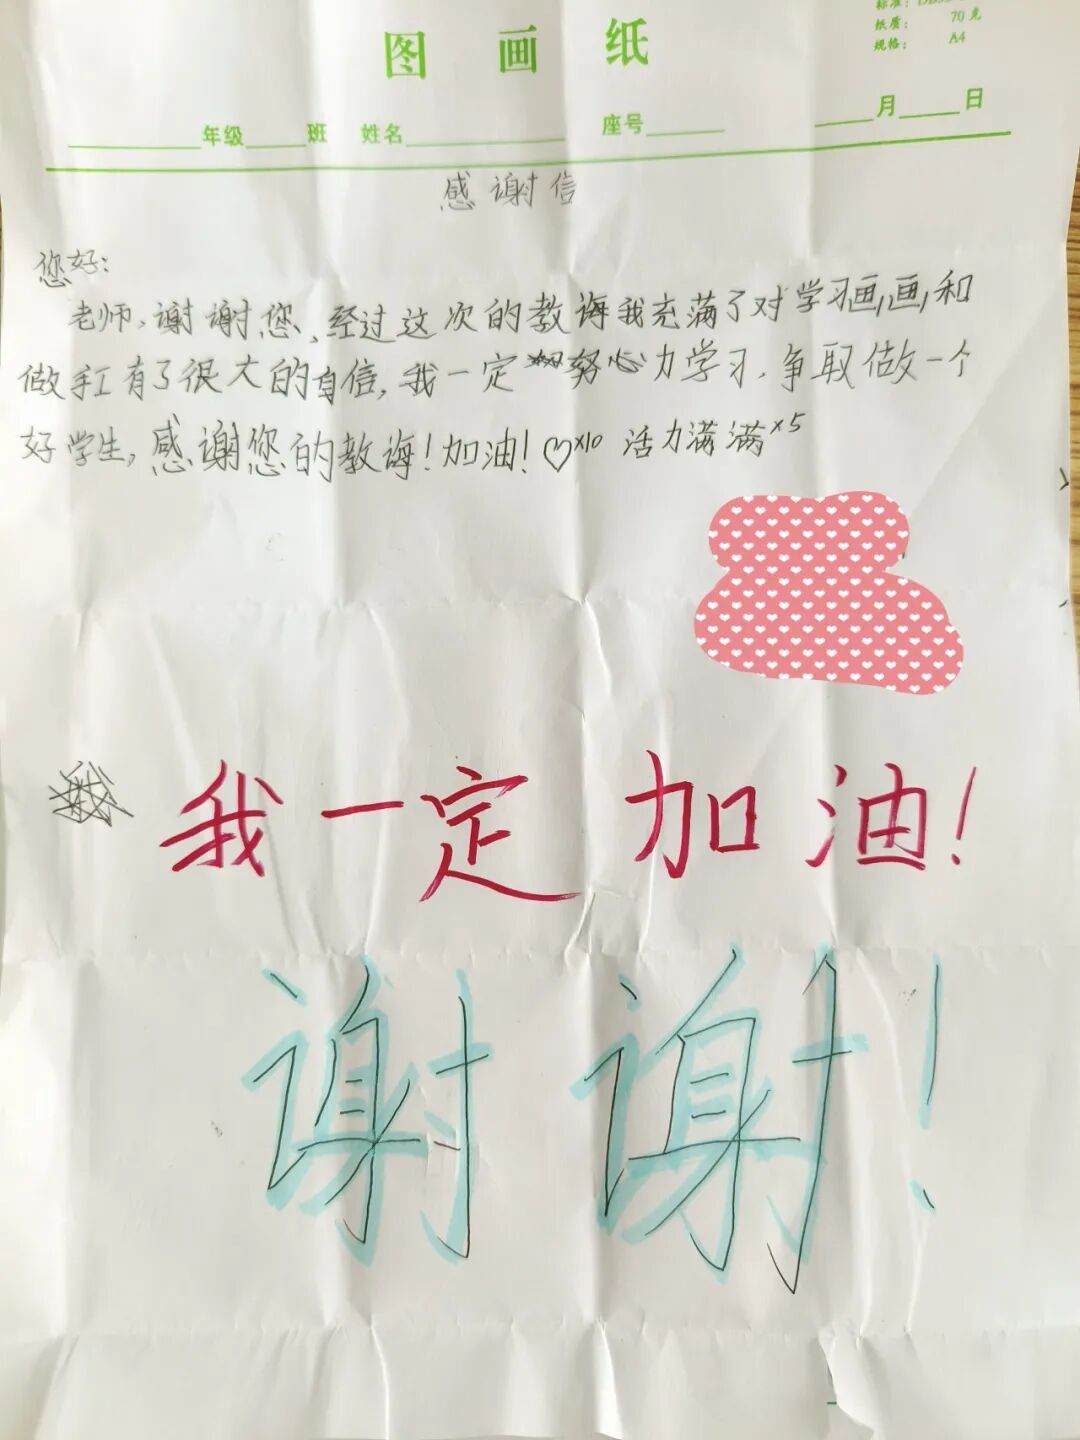 图 画 纸
纸质： 70克
规格： A4
年级 班 姓名 座号 月 日
感谢信
您好：
老师，谢谢您，经过这次的教诲我充满了对学习画画和
做手工有了很大的自信，我一定努力学习，争取做一个
好学生，感谢您的教诲！加油！♡×10 活力满满×5
我一定 加油！
谢谢！